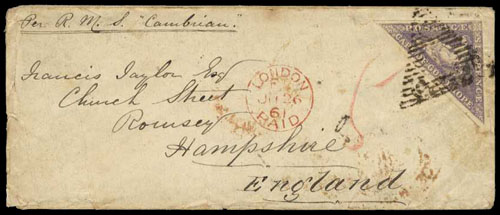 Per R. M. S. "Cambrian".
Francis Taylor Esq
Church Street
Romsey
Hampshire
England
LONDON
26
61
PAID
POSTAGE